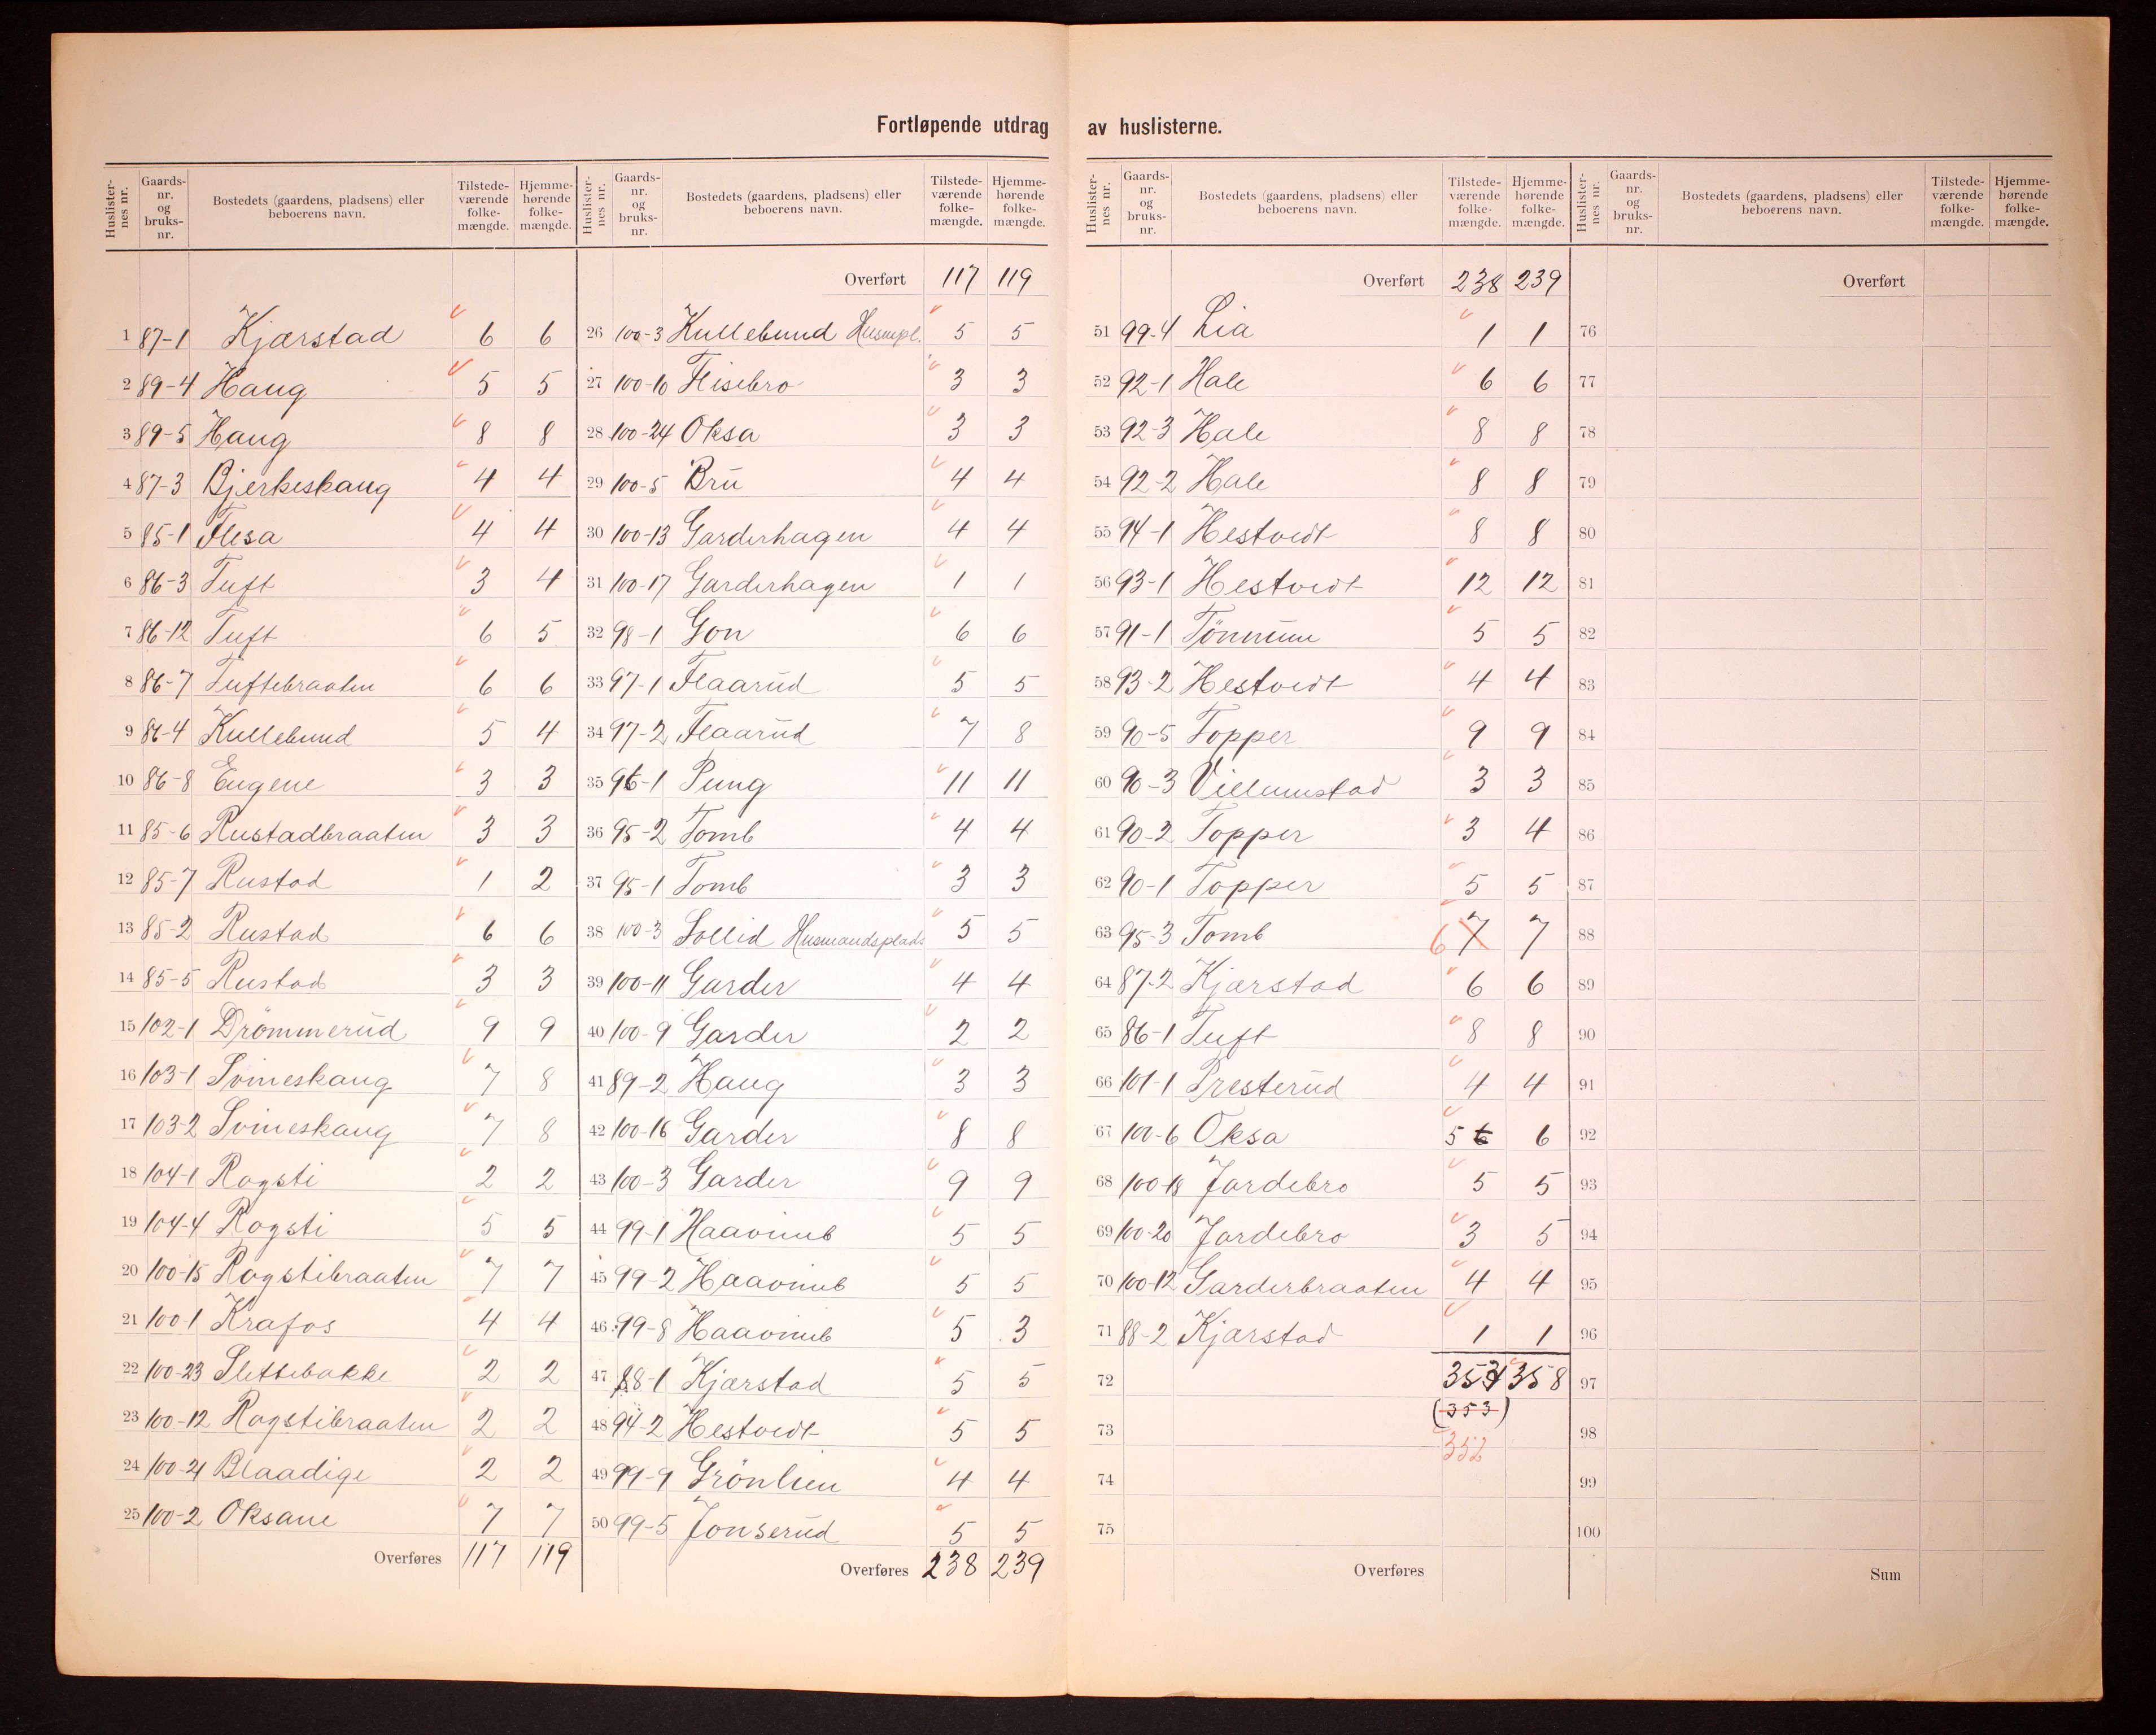 Fortløpende utdrag av huslisterne.
Huslisternes nr. Gaards-nr. og bruks-nr. Bostedets (gaardens, pladsens) eller beboerens navn. Tilstedeværende folkemængde. Hjemmehørende folkemængde.
1 87-1 Kjærstad 6 6
2 89-4 Haug 5 5
3 89-5 Haug 8 8
4 87-3 Bjerkeskaug 4 4
5 85-1 Flesa 4 4
6 86-3 Tuft 3 4
7 86-12 Tuft 6 5
8 86-7 Tuftebraaten 6 6
9 86-4 Kullebund 5 4
10 86-8 Eugene 3 3
11 85-6 Rustadbraaten 3 3
12 85-7 Rustad 1 2
13 85-2 Rustad 6 6
14 85-5 Rustad 3 3
15 102-1 Drömmerud 9 9
16 103-1 Svineskaug 7 8
17 103-2 Svineskaug 7 8
18 104-1 Rogsti 2 2
19 104-4 Rogsti 5 5
20 100-15 Rogstibraaten 7 7
21 100-1 Krafos 4 4
22 100-23 Slettebakke 2 2
23 100-12 Rogstibraaten 2 2
24 100-21 Blaadige 2 2
25 100-2 Oksane 7 7
Overføres 117 119
Huslisternes nr. Gaards-nr. og bruks-nr. Bostedets (gaardens, pladsens) eller beboerens navn. Tilstedeværende folkemængde. Hjemmehørende folkemængde.
Overført 117 119
26 100-3 Kullebund Husmpl. 5 5
27 100-10 Flisebro 3 3
28 100-24 Oksa 3 3
29 100-5 Bru 4 4
30 100-13 Garderhagen 4 4
31 100-17 Garderhagen 1 1
32 98-1 Gon 6 6
33 97-1 Flaarud 5 5
34 97-2 Flaarud 7 8
35 96-1 Pung 11 11
36 95-2 Tomb 4 4
37 95-1 Tomb 3 3
38 100-3 Sollid Husmandsplads 5 5
39 100-11 Garder 4 4
40 100-9 Garder 2 2
41 89-2 Haug 3 3
42 100-16 Garder 8 8
43 100-3 Garder 9 9
44 99-1 Haavimb 5 5
45 99-2 Haavimb 5 5
46 99-8 Haavimb 5 3
47 88-1 Kjærstad 5 5
48 94-2 Hestvedt 5 5
49 99-9 Grönlien 4 4
50 99-5 Jonserud 5 5
Overføres 238 239
Huslisternes nr. Gaards-nr. og bruks-nr. Bostedets (gaardens, pladsens) eller beboerens navn. Tilstedeværende folkemængde. Hjemmehørende folkemængde.
Overført 238 239
51 99-4 Lia 1 1
52 92-1 Hale 6 6
53 92-3 Hale 8 8
54 92-2 Hale 8 8
55 94-1 Hestvedt 8 8
56 93-1 Hestvedt 12 12
57 91-1 Tönnum 5 5
58 93-2 Hestvedt 4 4
59 90-5 Topper 9 9
60 90-3 Villumstad 3 3
61 90-2 Topper 3 4
62 90-1 Topper 5 5
63 95-3 Tomb 6 7 7
64 87-2 Kjærstad 6 6
65 86-1 Tuft 8 8
66 101-1 Presterud 4 4
67 100-6 Oksa 5 6 6
68 100-18 Jordebro 5 5
69 100-20 Jordebro 3 5
70 100-12 Garderbraaten 4 4
71 88-2 Kjærstad 1 1
72 358
73 (353)
352
74
75
Overføres
Huslisternes nr. Gaards-nr. og bruks-nr. Bostedets (gaardens, pladsens) eller beboerens navn. Tilstedeværende folkemængde. Hjemmehørende folkemængde.
Overført
76
77
78
79
80
81
82
83
84
85
86
87
88
89
90
91
92
93
94
95
96
97
98
99
100
Sum